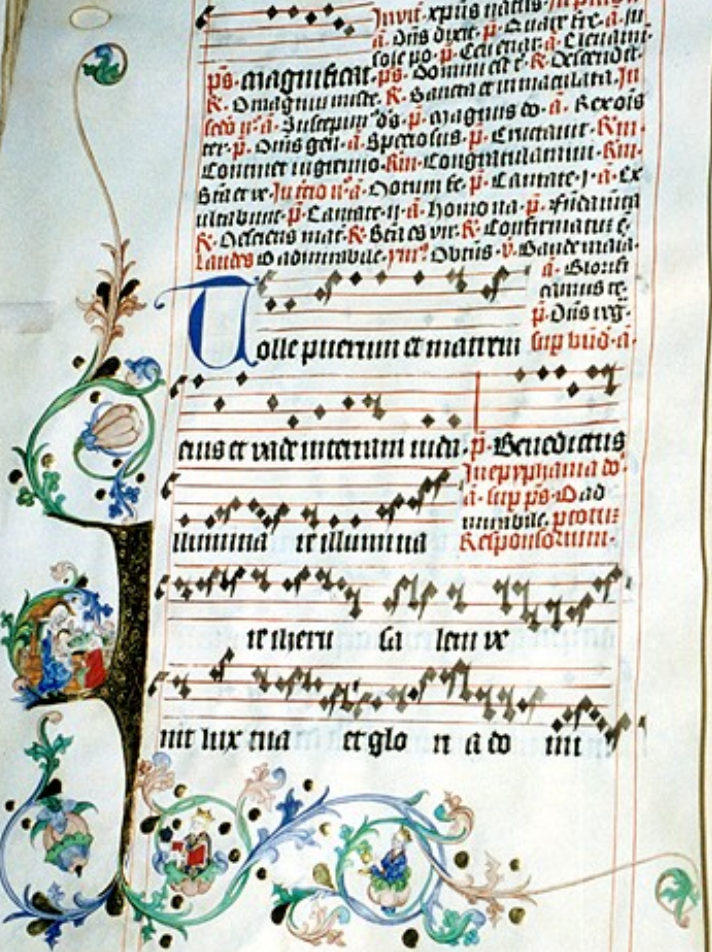 Invit. xpus natus. In prim
a. Dns dixit. p. Quare fre. a. iu
sole po. p. Celi enar. a. Eleuami
ps. Magnificat. ps. Domini est t. R. Descendit.
R. O magnu miste. R. Sancta et inmaculata. In
scdo no. a. Suscepim9 ds. p. Magnus do. a. Rex ois
ter. p. Omis gen. a. Speciosus. p. Eructauit. Rm.
Continet in gremio. Rm. Congratulamini. Rm.
Bta et ve. In tcio no. a. Notum fe. p. Cantate. j. a. Ex
ultabunt. p. Cantate. ij. a. homo na. p. Fundamta
R. Nesciens mat. R. Bta es vir. R. Confirmatu e.
Laudes O admirabile. Obtus. v. Gaude maia.
a. Glorifi
camus te.
p. Dns reg.
Tolle puerum et matrem sup bnd. a.
eius et vade in terram iuda. p. Benedictus
In epyphania do.
a. sup ps. O ad
mirabile. pcouiz
Illumina re illumina Responsorium.
re iheru sa lem ve
nit lux tua et glo ri a do mi